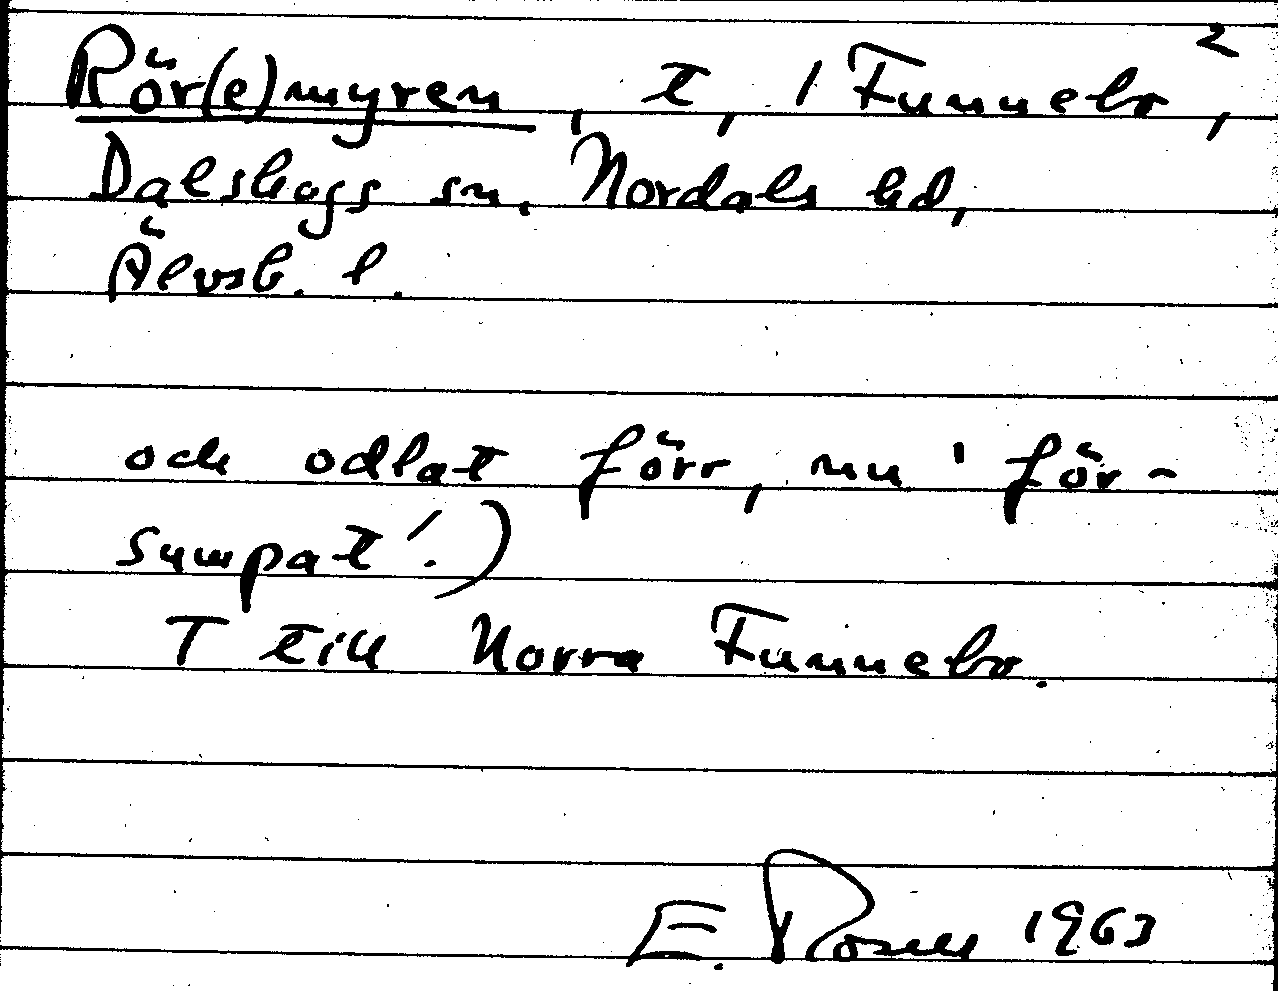 2
Rör(e)myren, t, / Funnebo,
Dalskogs sn. Nordals hd,
Älvsb. l.
och odlat förr, nu 'för-
sumpat'.)
T till Norra Funnebo.
E. Rosell 1963